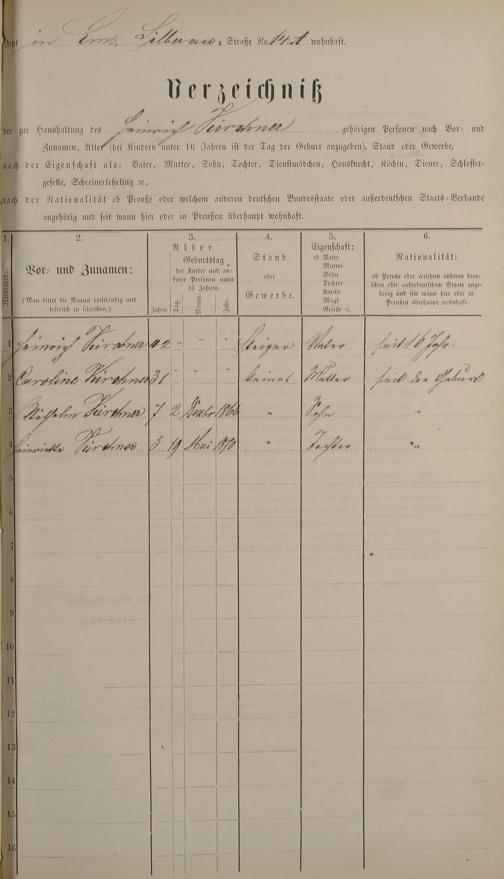 Jetzt in Ems, Silberau, Straße No. 14 A wohnhaft.
Verzeichniß
der zur Haushaltung des Heinrich Kürchner gehörigen Personen nach Vor- und
Zunamen, Alter (bei Kindern unter 16 Jahren ist der Tag der Geburt anzugeben), Stand oder Gewerbe,
nach der Eigenschaft als: Vater, Mutter, Sohn, Tochter, Dienstmädchen, Hausknecht, Köchin, Diener, Schlosser-
geselle, Schreinerlehrling ꝛc.,
nach der Nationalität ob Preuße oder welchem anderen deutschen Bundesstaate oder außerdeutschen Staats-Verbande
angehörig und seit wann hier oder in Preußen überhaupt wohnhaft.
1. 2. 3. 4. 5. 6.
Nummer.
Vor- und Zunamen:
(Man bittet die Namen vollständig und
leserlich zu schreiben.)
Alter
Geburtstag
der Kinder und an-
derer Personen unter
16 Jahren.
Jahre. Tag. Monat. Jahr.
Stand
oder
Gewerbe.
Eigenschaft:
ob Vater
Mutter
Sohn
Tochter
Knecht
Magd
Geselle ꝛc.
Nationalität:
ob Preuße oder welchen anderen deut-
schen oder außerdeutschen Staate ange-
hörig und seit wann hier oder in
Preußen überhaupt wohnhaft.
1 Heinrich Kürchner 42 " " " Steiger Vater seit 16 Jahr.
2 Caroline Kürchner 31 " " " keines Mutter seit der Geburt
3 Wilhelm Kürchner 7 2 Dezbr 1866 " Sohn "
4 Henriette Kürchner 3 19 Mai 1870 " Tochter "
5
6
7
8
9
10
11
12
13
14
15
16